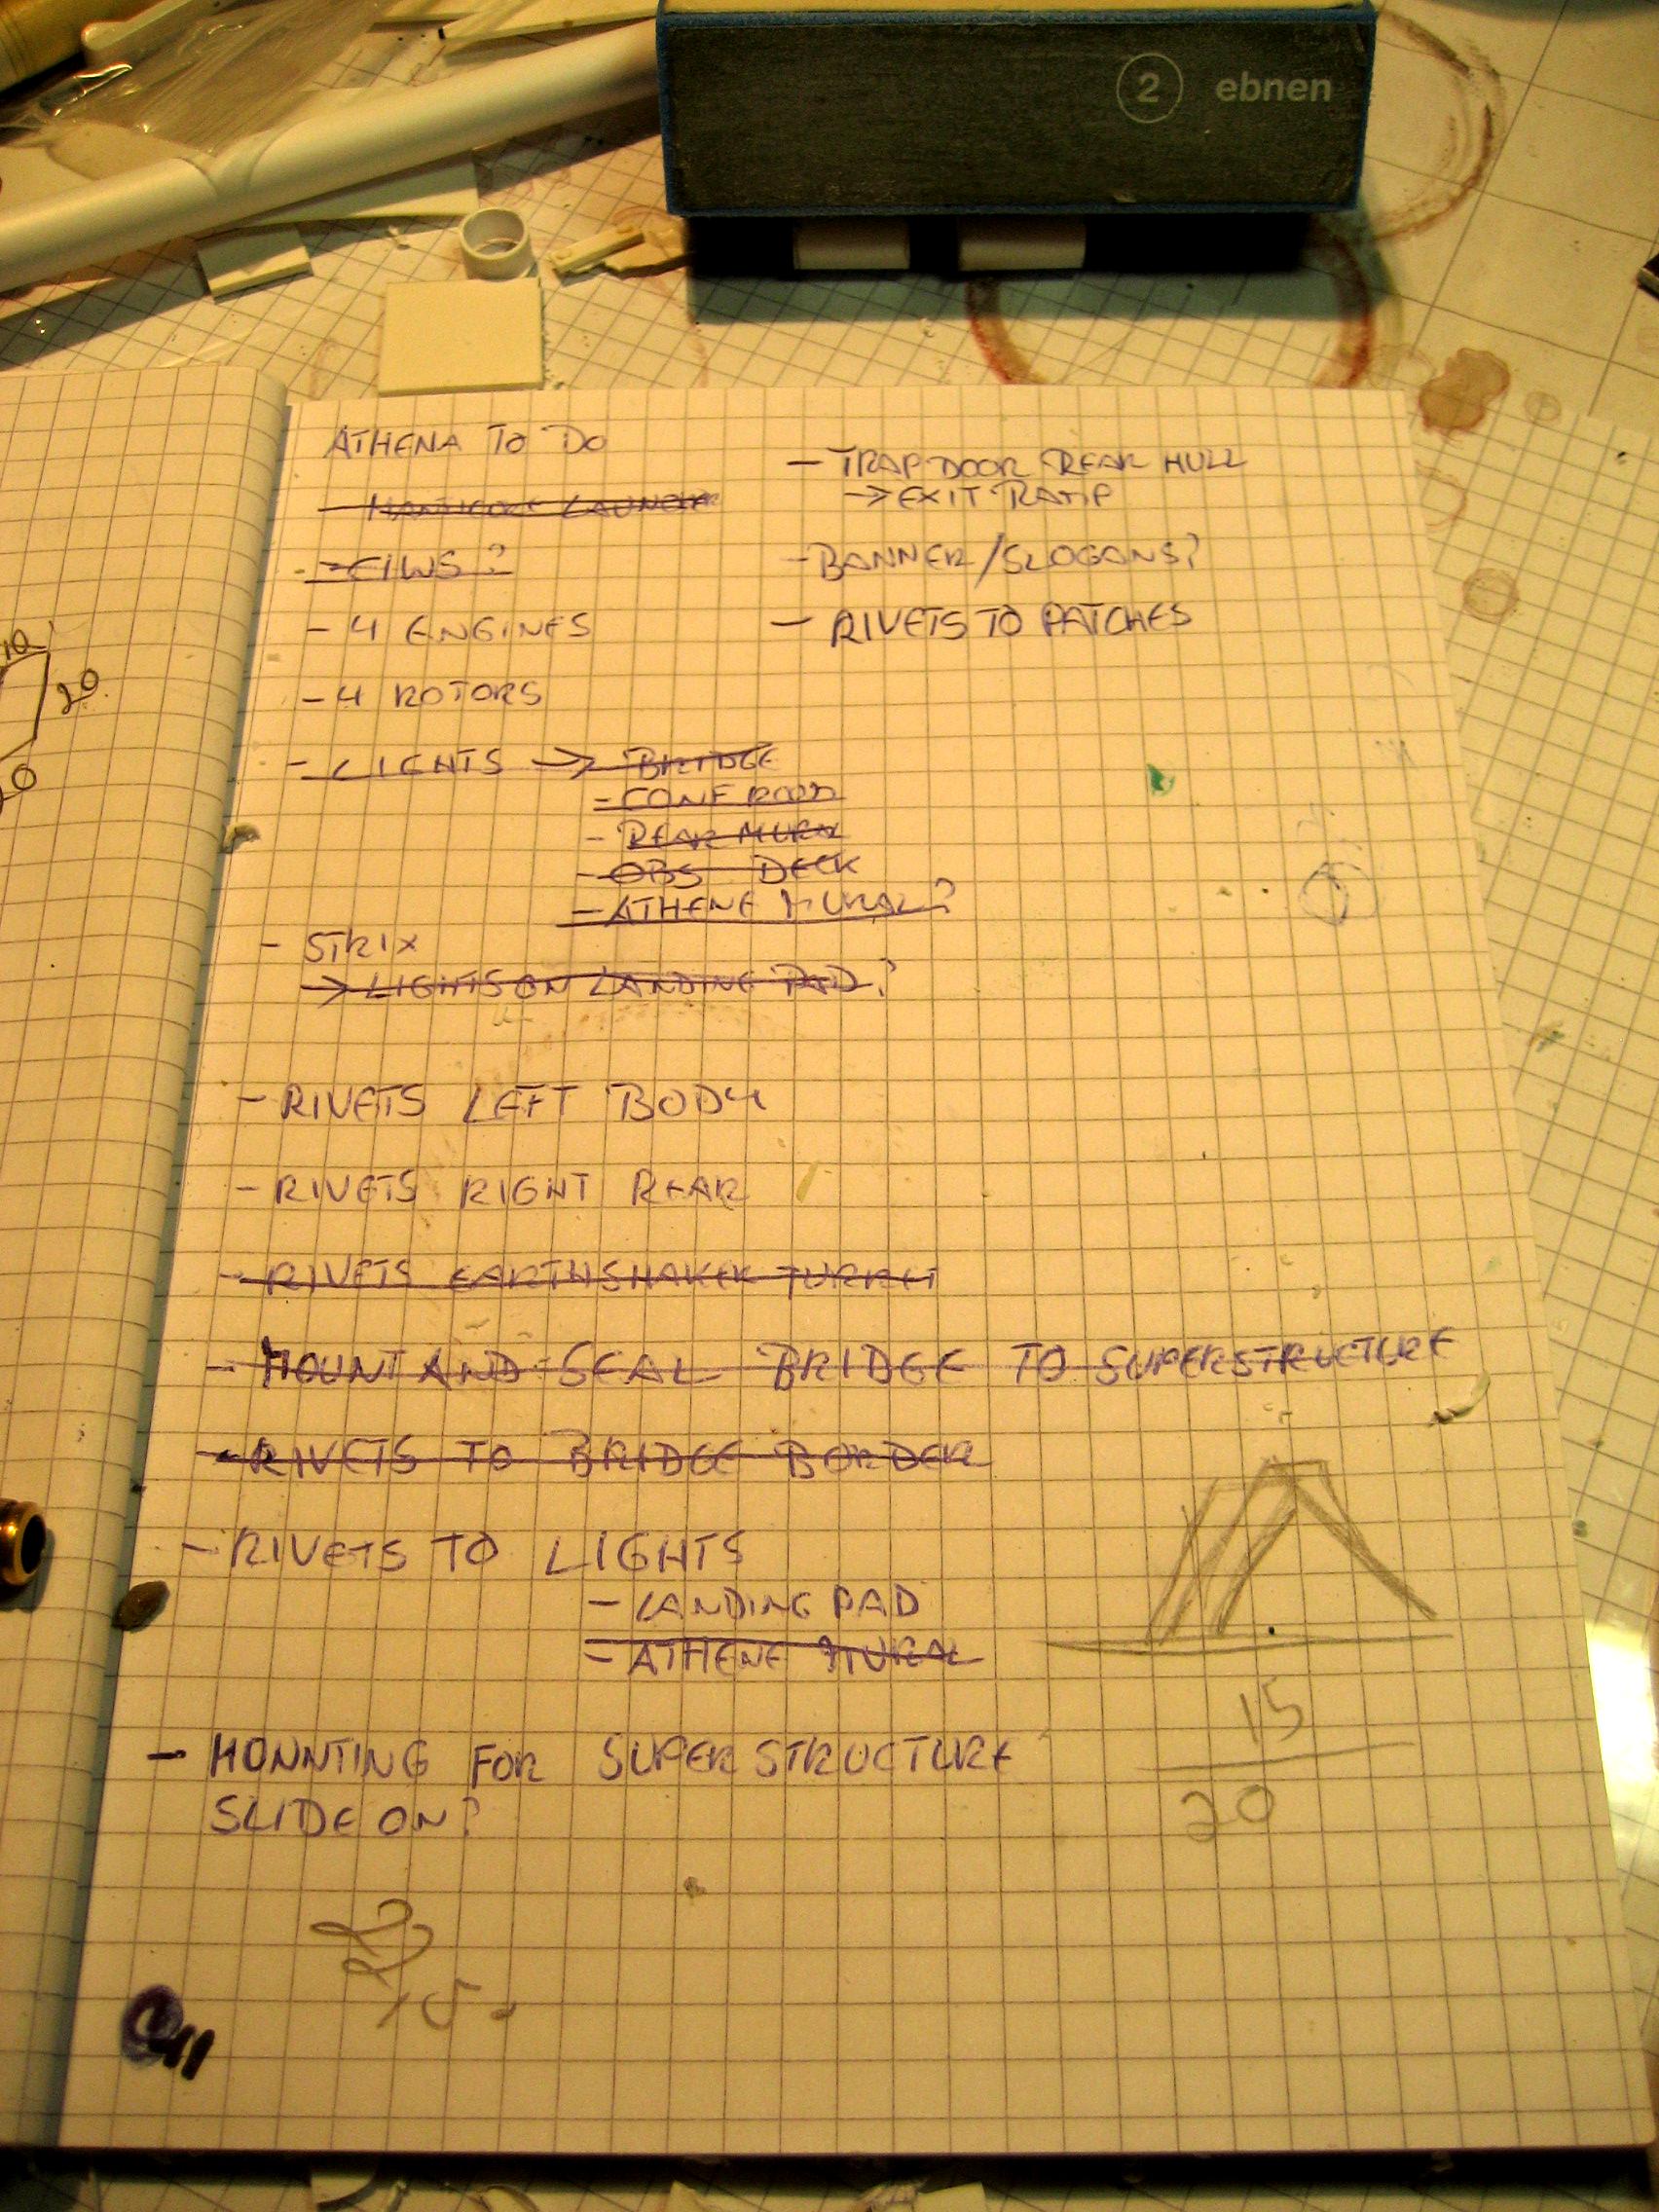 2 ebnen
ATHENA TO DO
- MANTICORE LAUNCHER
- CIWS?
- 4 ENGINES
- 4 ROTORS
- LIGHTS → BRIDGE
- CONF ROOM
- REAR MURAL
- OBS DECK
- ATHENE MURAL?
- STRIX
→ LIGHTS ON LANDING PAD?
- RIVETS LEFT BODY
- RIVETS RIGHT REAR
- RIVETS EARTHSHAKER TURRET
- MOUNT AND SEAL BRIDGE TO SUPERSTRUCTURE
- RIVETS TO BRIDGE BORDER
- RIVETS TO LIGHTS
- LANDING PAD
- ATHENE MURAL
- MONNTING FOR SUPERSTRUCTURE
SLIDE ON?
- TRAPDOOR REAR HULL
→ EXIT RAMP
- BANNER/SLOGANS?
- RIVETS TO PATCHES
15
20
10
20